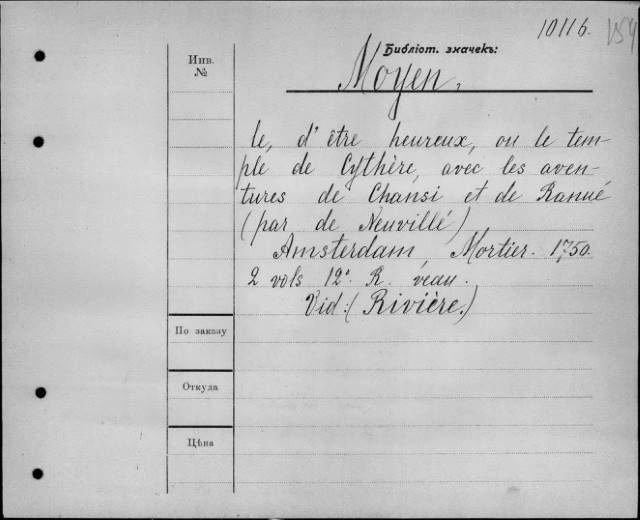 10116. 154
Библіот. значекъ:
Инв.
№
Moyen,
le, d'être heureux, ou le tem-
ple de Cythère, avec les aven-
tures de Chansi et de Ranné
(par de Neuvillé)
Amsterdam, Mortier. 1750.
2 vols 12º. R. veau.
Vid: (Rivière.)
По заказу
Откуда
Цѣна